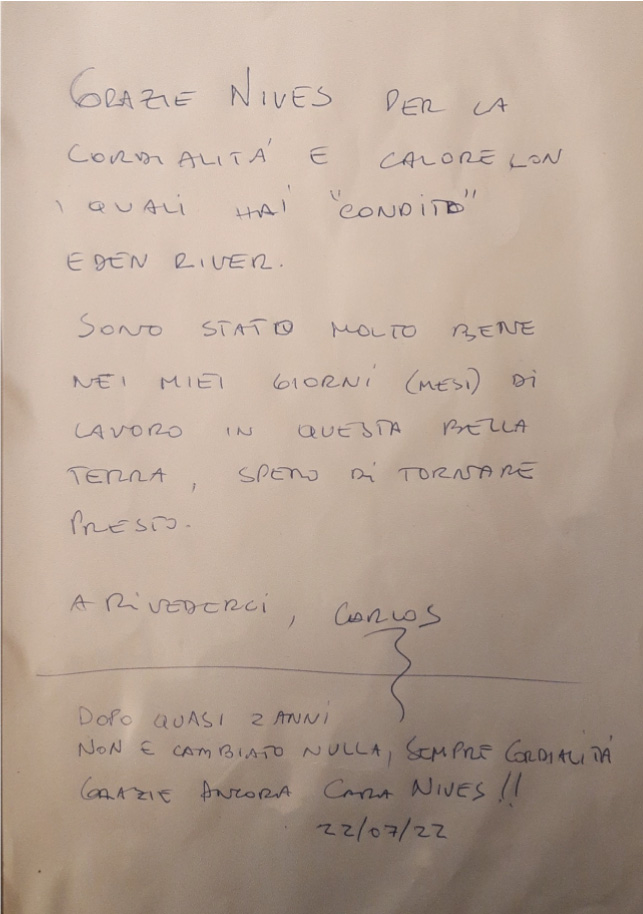 GRAZIE NIVES PER LA
CORDIALITÁ E CALORE CON
I QUALI HAI "CONDITO"
EDEN RIVER.
SONO STATO MOLTO BENE
NEI MIEI GIORNI (MESI) DI
LAVORO IN QUESTA BELLA
TERRA, SPERO DI TORNARE
PRESTO.
A RIVEDERCI, CARLOS
DOPO QUASI 2 ANNI
NON E CAMBIATO NULLA, SEMPRE CORDIALITÁ
GRAZIE ANCORA CARA NIVES!!
22/07/22